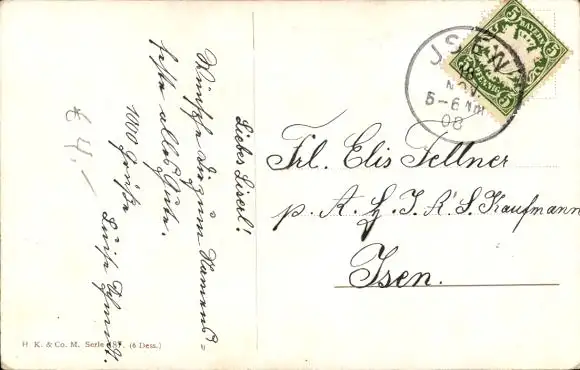 Liebes Liserl!
Wünsche Dir zum Namens=
feste alles Gute.
1000 Grüße
Luise Schmidt.
€ 4.-
H K. & Co. M. Serie 187. (6 Dess.)
BAYERN
5 5
5 5
PFENNIG
18
NOV.
5-6 NM
08
Frl. Elis Fellner
p. A. H. J. R. S. Kaufmann
Isen.